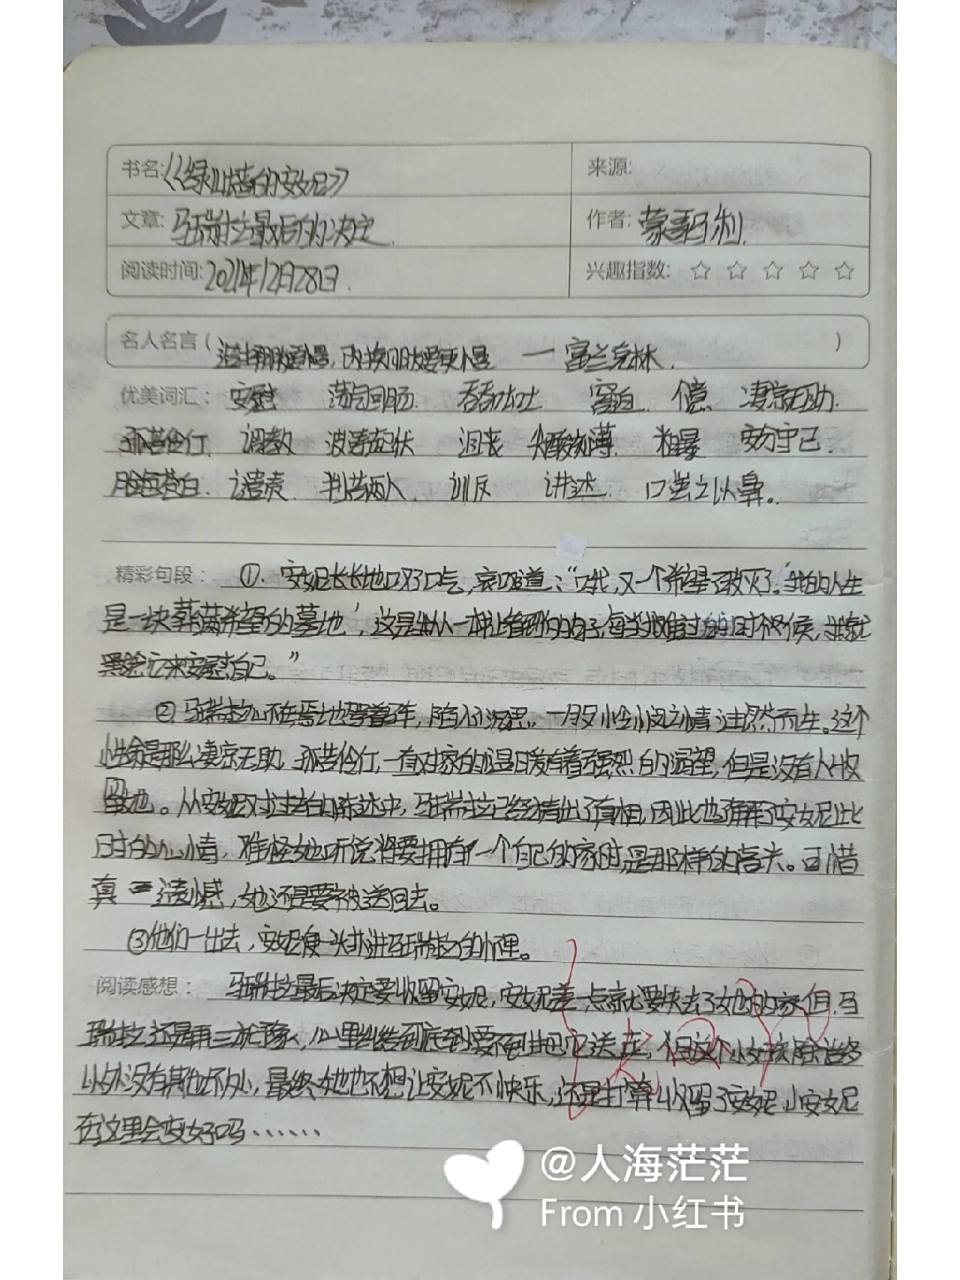 书名:《绿山墙的安妮》 来源:
文章: 马瑞拉最后的决定. 作者: 蒙哥马利.
阅读时间: 2021年12月28日. 兴趣指数: ☆ ☆ ☆ ☆ ☆
名人名言( 朋友要慢, 朋友要更慢 — 富兰克林. )
优美词汇: 安慰 荡气回肠. 吞吞吐吐 凄凉无助.
孤苦伶仃 调教 沮丧 尖酸刻薄. 粗暴 安分守己.
脸色苍白. 谴责. 判若两人. 讲述.
精彩句段: ①. 安妮长长地叹了口气,哀叹道:“哦,又一个希望破灭了.‘我的人生
是一块葬满希望的墓地’,这是我从一本书上看到的句子,每当我难过的时候,我就
来安慰自己。”
②马瑞拉心不在焉地驾着车,陷入了沉思.一股怜悯之情油然而生。这个
是那么凄凉无助,孤苦伶仃,一直对家的温暖有着强烈的渴望,但是没有人收
留她。从安妮对过去的陈述中,马瑞拉已经猜出了真相,因此也理解了安妮此
时的心情,难怪她听说将要拥有一个自己的家时,是那样的喜兴。可惜
真遗憾,她还是要被送回去。
③他们一出去,安妮便一头扑进马瑞拉的怀里。
阅读感想: 马瑞拉最后决定要收留安妮,安妮差一点就要失去了她的家,但马
瑞拉还是再三犹豫,心里纠结到底要不要把它送走,但这个小女孩除话多
以外没有其他坏处,最终她也不想让安妮不快乐,还是打算收留了安妮,小安妮
在这里会变好吗……
@人海茫茫
From 小红书